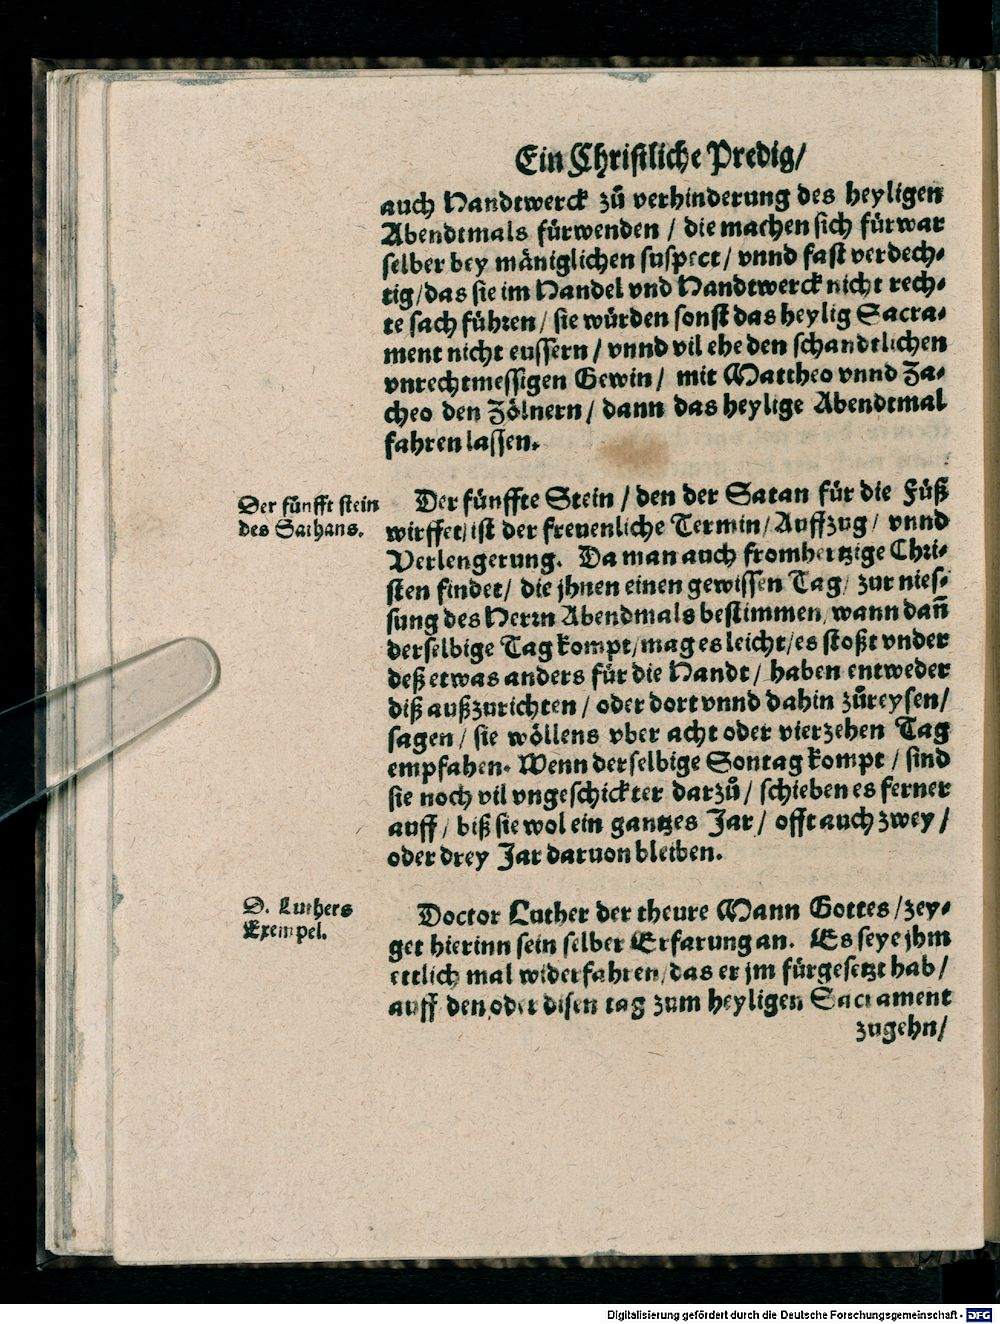 Ein Christliche Predig/
auch Handtwerck zů verhinderung des heyligen
Abendtmals fürwenden / die machen sich fürwar
selber bey mäniglichen suspect / vnnd fast verdech-
tig / das sie im Handel vnd Handtwerck nicht rech-
te sach führen / sie würden sonst das heylig Sacra-
ment nicht eussern / vnnd vil ehe den schandtlichen
vnrechtmessigen Gewin / mit Mattheo vnnd Za-
cheo den Zölnern / dann das heylige Abendtmal
fahren lassen.
Der fünfft stein
des Sathans.
Der fünffte Stein / den der Satan für die Füß
wirffet / ist der freuenliche Termin / Auffzug / vnnd
Verlengerung. Da man auch fromhertzige Chri-
sten findet / die jhnen einen gewissen Tag / zur nies-
sung des Herrn Abendmals bestimmen / wann dañ
derselbige Tag kompt / mag es leicht / es stoßt vnder
deß etwas anders für die Handt / haben entweder
diß außzurichten / oder dort vnnd dahin zůreysen /
sagen / sie wöllens vber acht oder vierzehen Tag
empfahen. Wenn derselbige Sontag kompt / sind
sie noch vil vngeschickter darzů / schieben es ferner
auff / biß sie wol ein gantzes Jar / offt auch zwey /
oder drey Jar daruon bleiben.
D. Luthers
Exempel.
Doctor Luther der theure Mann Gottes / zey-
get hierinn sein selber Erfarung an. Es seye jhm
ettlich mal widerfahren / das er jm fürgesetzt hab /
auff den oder disen tag zum heyligen Sacrament
zugehn /
Digitalisierung gefördert durch die Deutsche Forschungsgemeinschaft - DFG